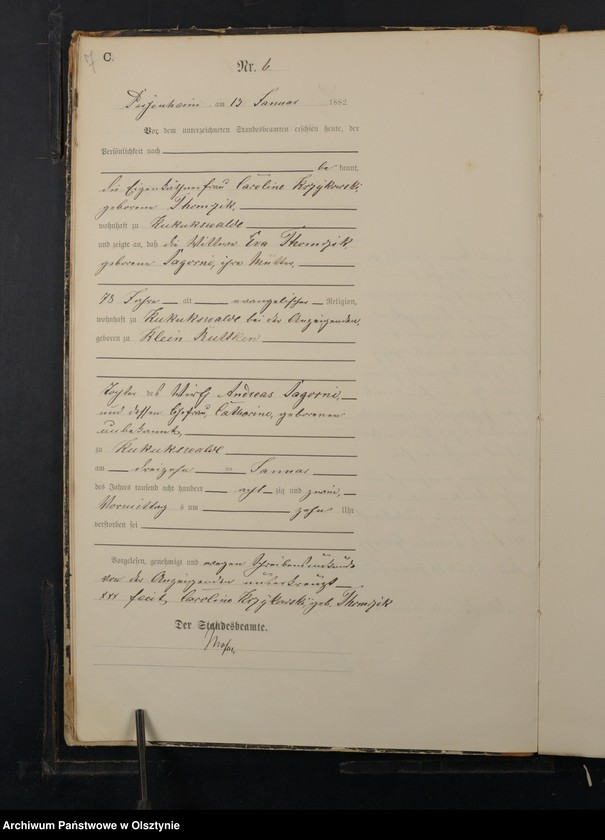 7 C.
Nr. 6
am 13 Januar 1882
Vor dem unterzeichneten Standesbeamten erschien heute, der
Persönlichkeit nach
be kannt,
die Eigenkäthnerfrau Caroline Krzykowski,
geborene Thomzik,
wohnhaft zu Kukukswalde
und zeigte an, daß die Wittwe Eva Thomzik,
geborene Sagorni, ihre Mutter,
78 Jahre alt evangelischer Religion,
wohnhaft zu Kukukswalde bei der Anzeigenden,
geboren zu Klein Ruttken
Tochter des Wirth Andreas Sagorni
und dessen Ehefrau, Catharine, geborenen
unbekannt,
zu Kukukswalde
am dreizehn ten Januar
des Jahres tausend acht hundert acht zig und zwei,
Vormittag s um zehn Uhr
verstorben sei
Vorgelesen, genehmigt und wegen Schreibensunkunde
von der Anzeigenden unterkreuzt
+++ fecit, Caroline Krzykowski geb. Thomzik
Der Standesbeamte.
Archiwum Państwowe w Olsztynie